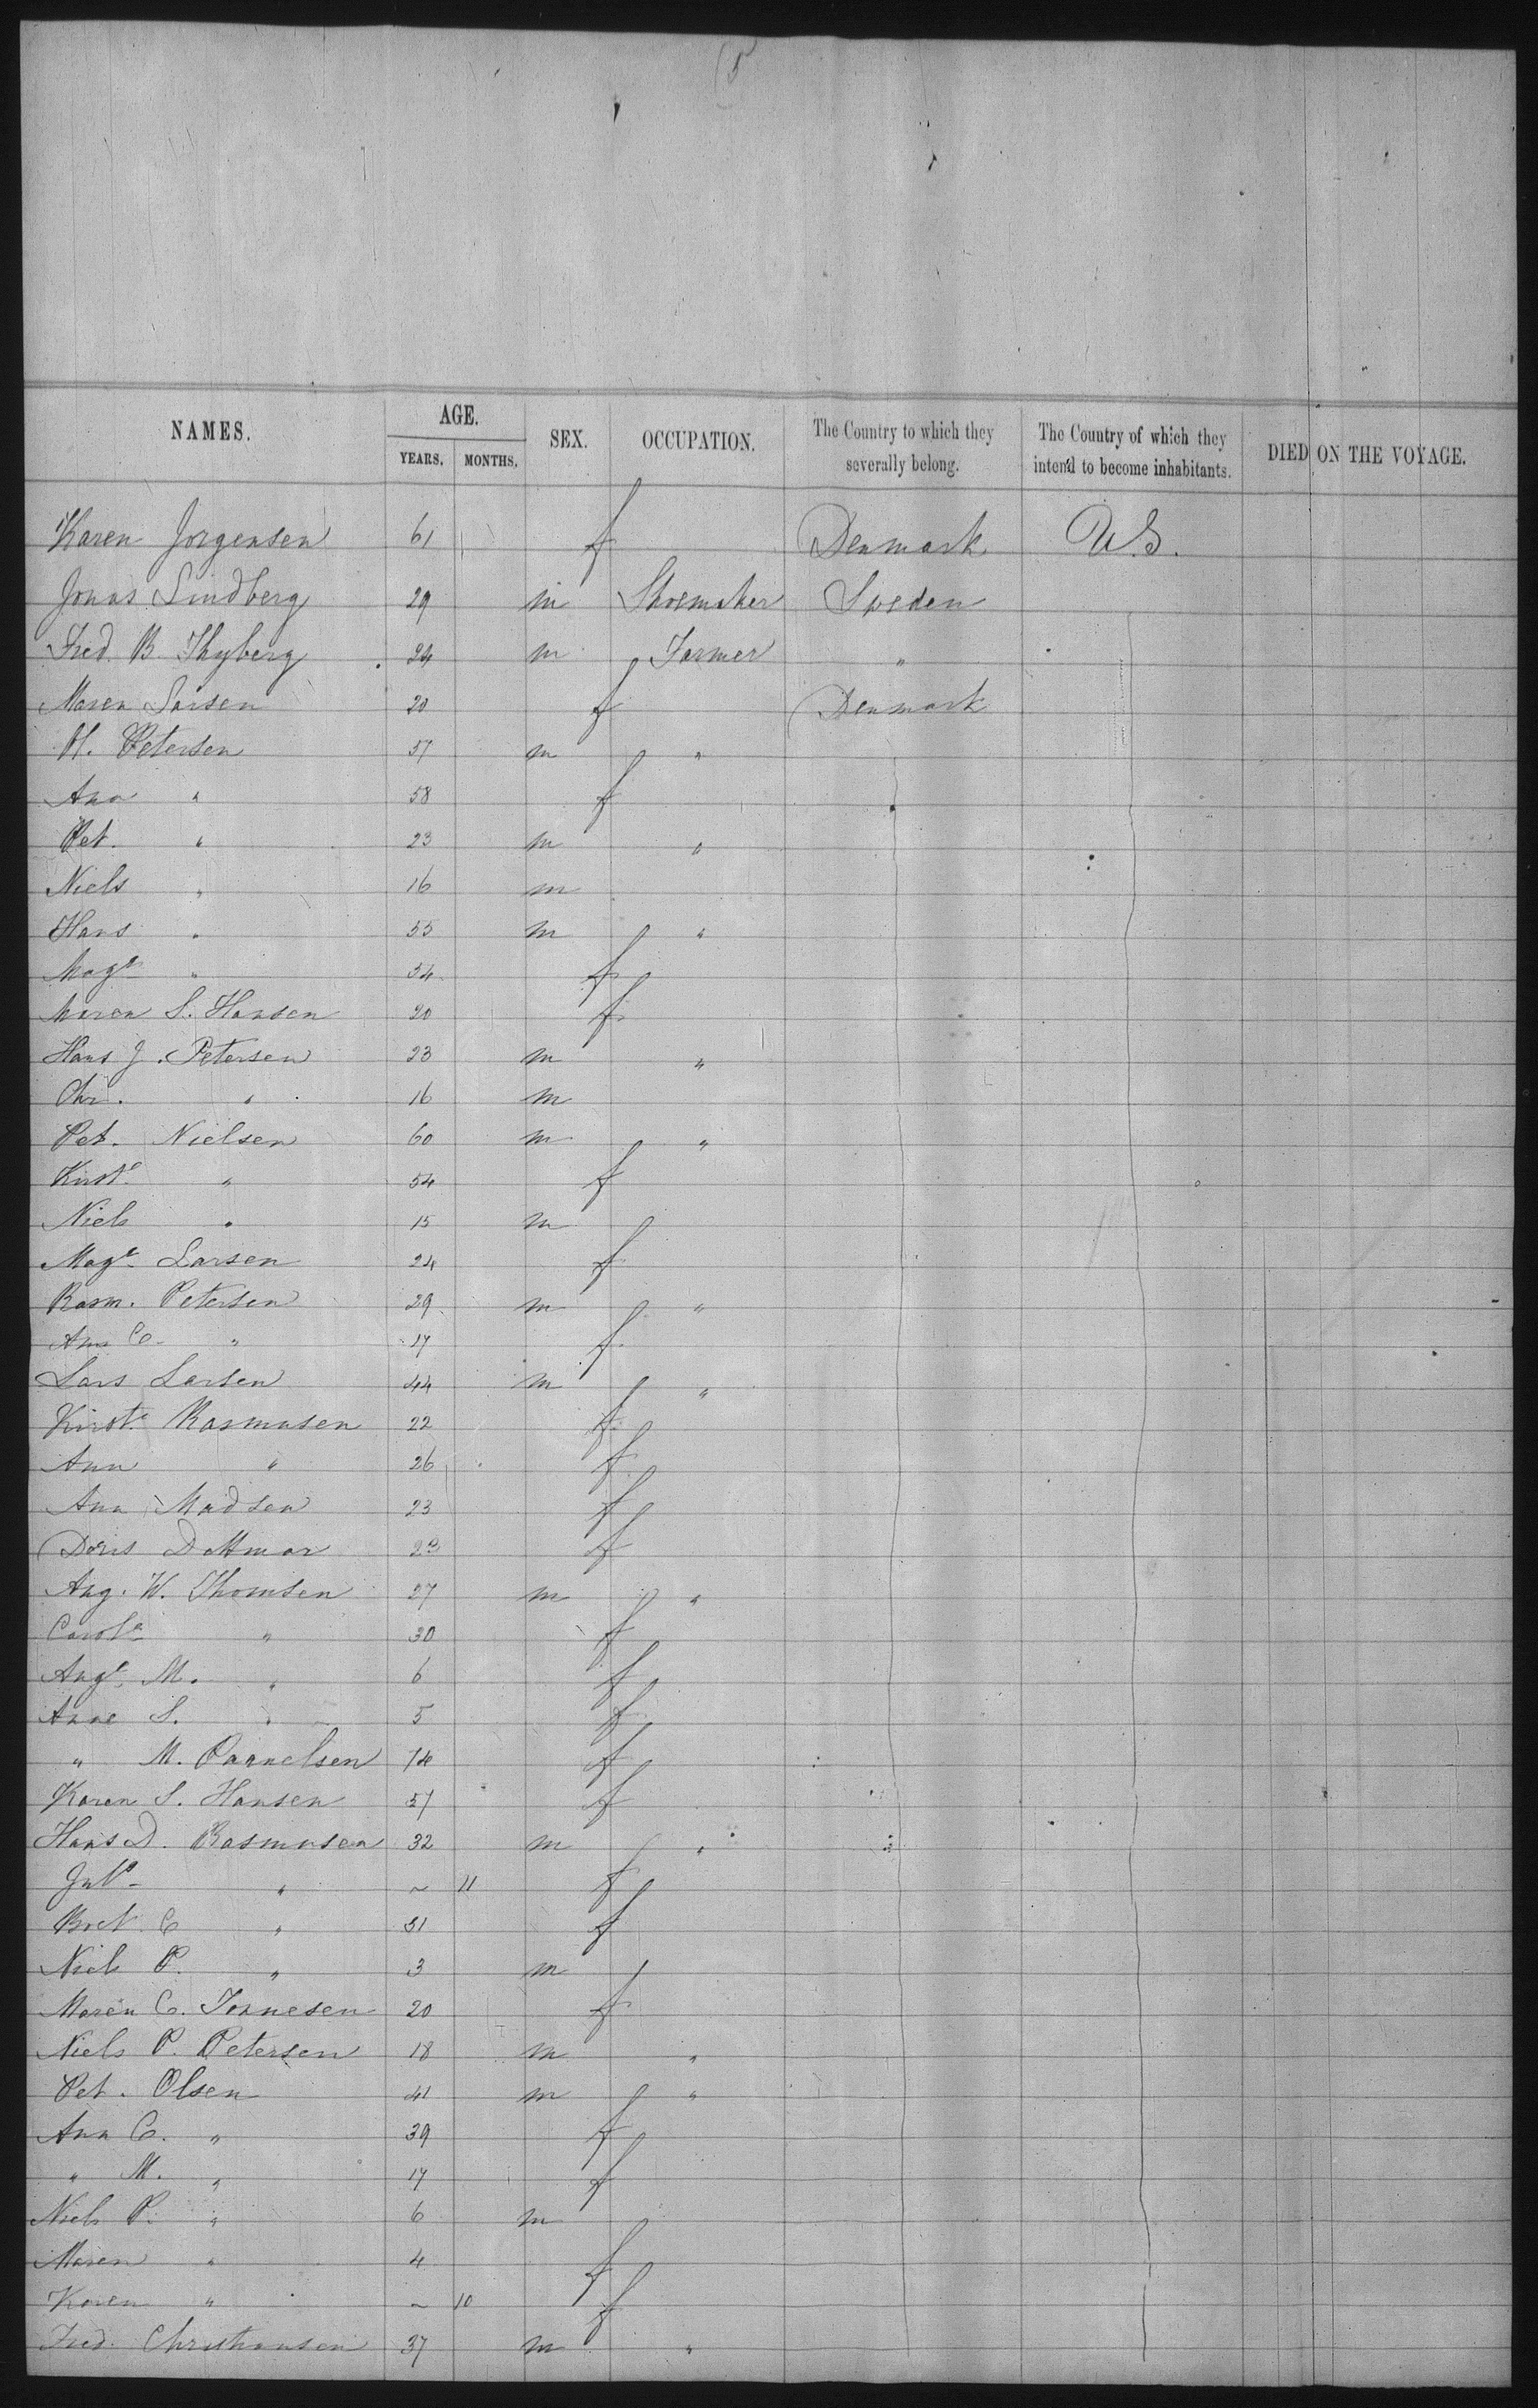 5
NAMES. AGE. YEARS. MONTHS. SEX. OCCUPATION. The Country to which they severally belong. The Country of which they intend to become inhabitants. DIED ON THE VOYAGE.
Karen Jorgensen 61 f Denmark U.S.
Jonas Lindberg 29 m Shoemaker Sweden
Fred. B Thyberg 24 m Farmer "
Maren Larsen 20 f Denmark
H. Petersen 57 m "
Ana " 58 f
Pet. " 23 m "
Niels " 16 m
Hans " 55 m "
Mage " 54 f
Maren S. Hansen 20 f
Hans J. Petersen 23 m "
Chr. " 16 m
Pet. Nielsen 60 m "
Kirste " 54 f
Niels " 15 m
Mage Larsen 24 f
Rasm. Petersen 29 m "
Ana C. " 17 f
Lars Larsen 44 m "
Kirste Rasmusen 22 f
Ann " 26 f
Ann Madsen 23 f
Doris Dottmar f
Aug. W. Thomsen 27 m "
" 30 f
Auge M. " 6 f
Anne S. " 5 f
" M. 14 f
Karen S. Hansen 57 f
Hans D. Rasmusen 32 m "
Jule " ~ 11 f
C " 31 f
Niels P. " 3 m
Maren C. Tonnesen 20 f
Niels P. Petersen 18 m "
Pet. Olsen 41 m "
Ann C. " 39 f
" M. " 17 f
Niels P. " 6 m
Maren " 4 f
Karen " ~ 10 f
Fred. Christiansen 37 m "